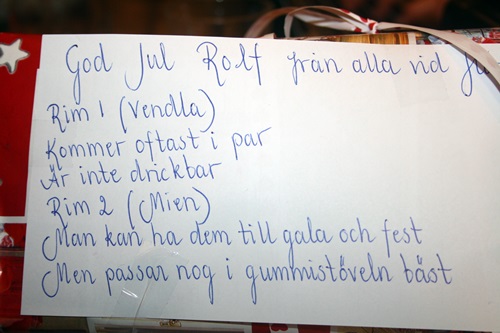 God Jul Rolf från alla vid
Rim 1 (Vendla)
Kommer oftast i par
Är inte drickbar
Rim 2 (Mien)
Man kan ha dem till gala och fest
Men passar nog i gummistöveln bäst